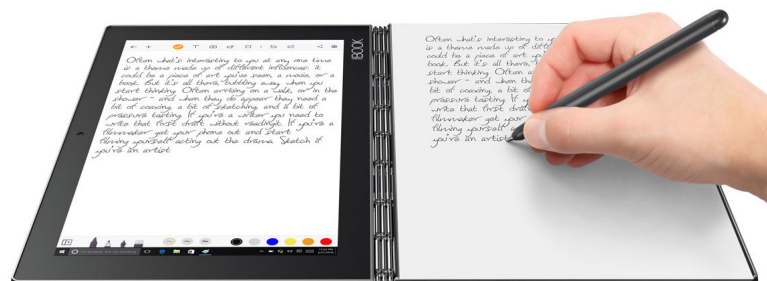 Often what's interesting to you at any one time
is a theme made up of different influences: it
could be a piece of art you've seen, a movie, or a
book. But it's all there, bubbling away when you
start thinking. Often arriving on a walk, or in the
shower - and when they do appear they need a
bit of coaxing, a bit of sketching, and a bit of
pressure testing. If you're a writer you need to
write that first draft without reading it. If you're a
filmmaker get your phone out and start
filming yourself acting out the drama. Sketch if
you're an artist
BOOK
Often what's interesting to yo
is a theme made up of diff
book. But it's all there,
start thinking. Often a
shower - and when th
bit of coaxing, a bit of
pressure testing. If y
write that first dra
filmmaker get your
filming yourself a
you're an artist